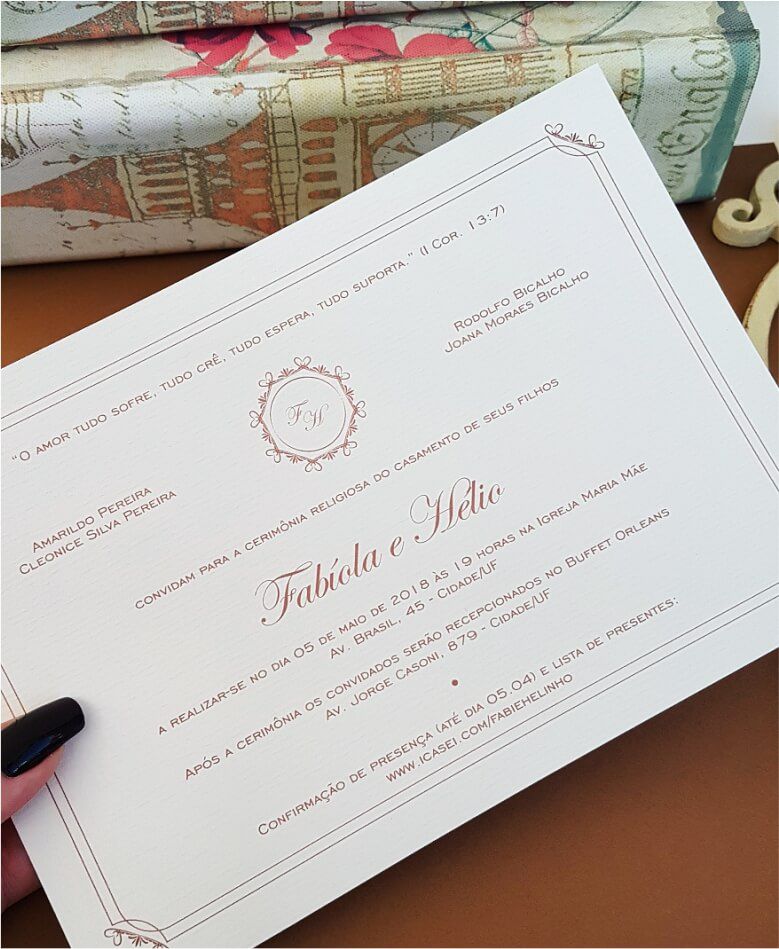 Engla
"O AMOR TUDO SOFRE, TUDO CRÊ, TUDO ESPERA, TUDO SUPORTA." (I COR. 13:7)
AMARILDO PEREIRA
CLEONICE SILVA PEREIRA
RODOLFO BICALHO
JOANA MORAES BICALHO
FH
CONVIDAM PARA A CERIMÔNIA RELIGIOSA DO CASAMENTO DE SEUS FILHOS
Fabíola e Hélio
A REALIZAR-SE NO DIA 05 DE MAIO DE 2018 ÀS 19 HORAS NA IGREJA MARIA MÃE
AV. BRASIL, 45 - CIDADE/UF
APÓS A CERIMÔNIA OS CONVIDADOS SERÃO RECEPCIONADOS NO BUFFET ORLEANS
AV. JORGE CASONI, 879 - CIDADE/UF
CONFIRMAÇÃO DE PRESENÇA (ATÉ DIA 05.04) E LISTA DE PRESENTES:
WWW.ICASEI.COM/FABIEHELINHO